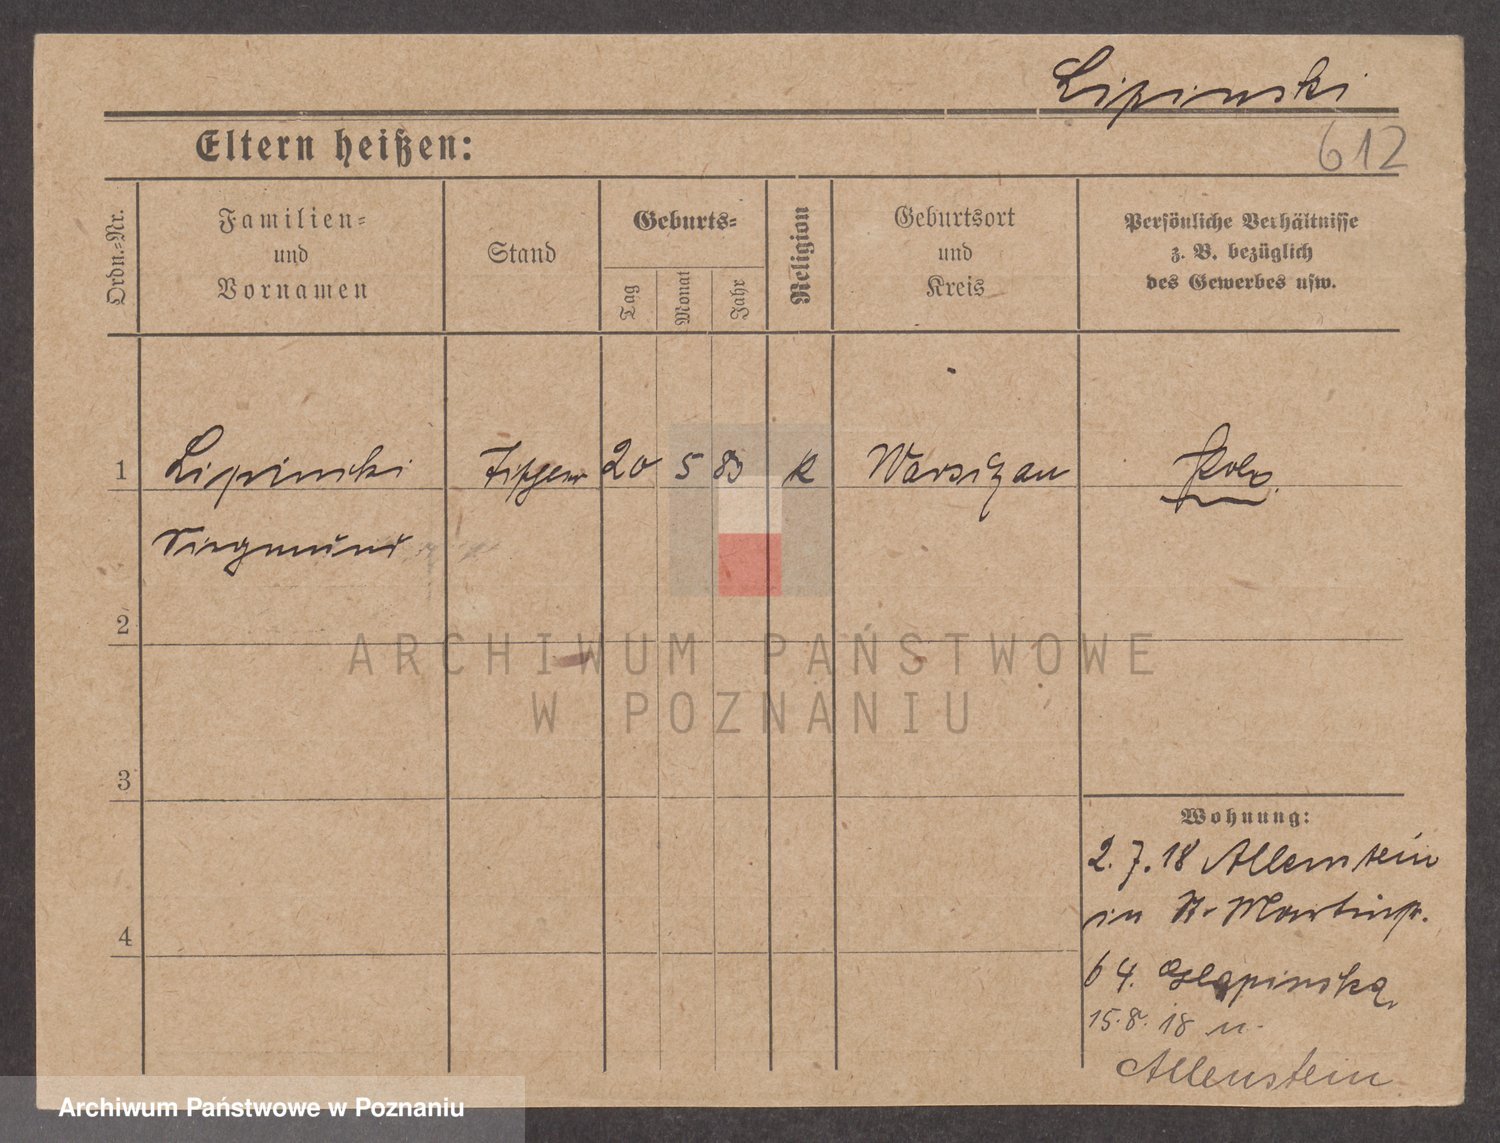 Lipinski
612
Eltern heißen:
Ordn.=Nr.
Familien=
und
Vornamen
Stand
Geburts=
Tag
Monat
Jahr
Religion
Geburtsort
und
Kreis
Persönliche Verhältnisse
z. B. bezüglich
des Gewerbes usw.
1 Lipinski 20 5 83 k
Siegmund
2
ARCHIWUM PAŃSTWOWE
W POZNANIU
3
Wohnung:
2. 7. 18 Allenstein
in St. Martinstr.
4
64.
15. 8. 18 n.
Allenstein
Archiwum Państwowe w Poznaniu